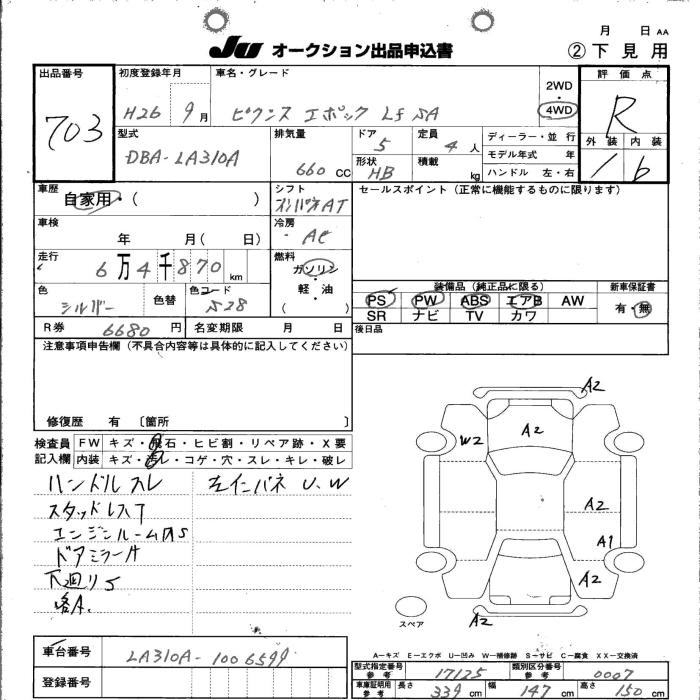 月 日 AA
JU オークション出品申込書 ②下見用
出品番号 703
初度登録年月 H26 9月
車名・グレード
2WD・4WD
評価点 R
外装 内装
1 6
型式 DBA-LA310A
排気量 660 CC
ドア 5
定員 4人
ディーラー・並行
モデル年式 年
形状 HB
積載 kg
ハンドル 左・右
車歴 自家用・( )
シフト
セールスポイント (正常に機能するものに限ります)
車検 年 月( 日)
冷房 AC
走行 6万4千870km
燃料 ガソリン・軽・油 ( )
色 シルバー 色替 色コード S28
装備品 (純正品に限る)
新車保証書
PS PW ABS エアB AW
有・無
SR ナビ TV カワ
R券 6680円 名変期限 月 日
後日品
注意事項申告欄 (不具合内容等は具体的に記入してください)
修復歴 有 〔箇所 〕
検査員記入欄
FW キズ・飛石・ヒビ割・リペア跡・X要
内装 キズ・汚レ・コゲ・穴・スレ・キレ・破レ
ハンドルスレ
スタッドレスT
エンジンルーム内S
ドアミラーA
下廻りS
A2
W2
A2
A2
A1
A2
A2
スペア
A-キズ E-エクボ U-凹み W-補修跡 S-サビ C-腐食 XX-交換済
車台番号 LA310A-1006599
登録番号
型式指定番号 参考 17125
類別区分番号 参考 0007
車庫証明用 参考 長さ 339 cm 幅 147 cm 高さ 150 cm